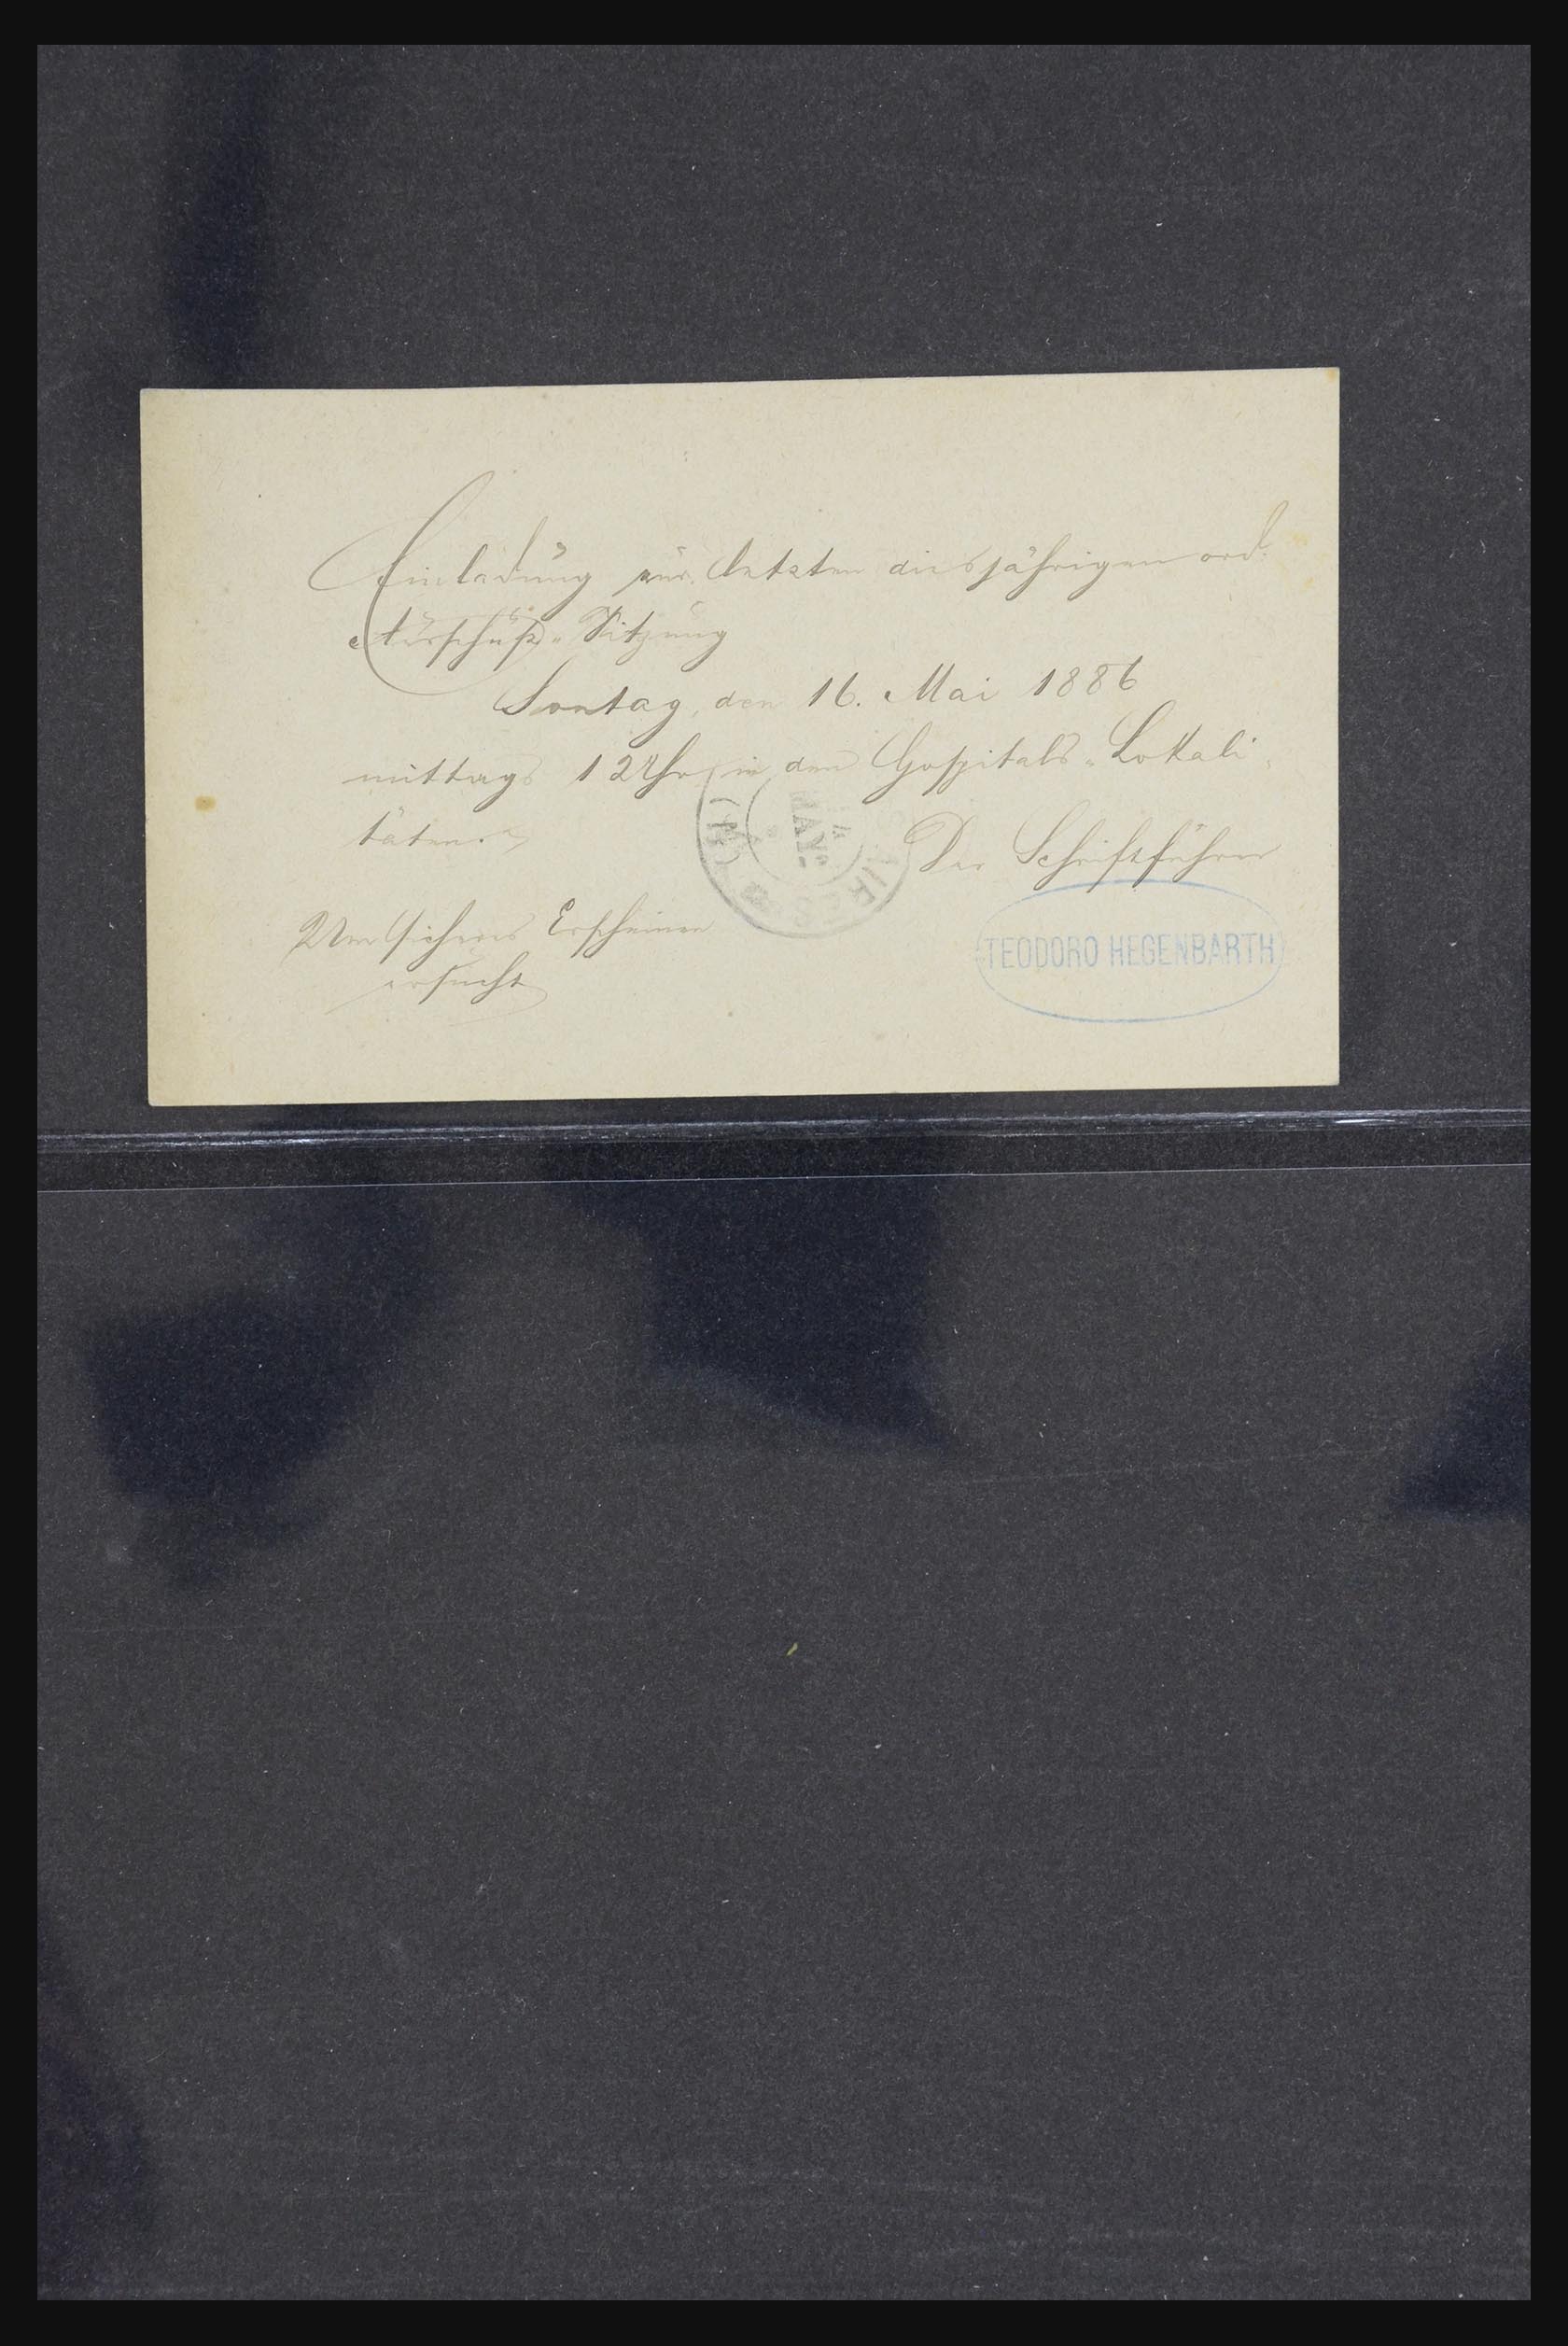 Einladung zur letzten diesjährigen ord.
Ausschuß-Sitzung
Sontag, den 16. Mai 1886
mittags 12 Uhr in den Hospitals-Lokali-
täten.
Der Schriftführer
Um sicheres Erscheinen
ersucht
TEODORO HEGENBARTH
4
MAY